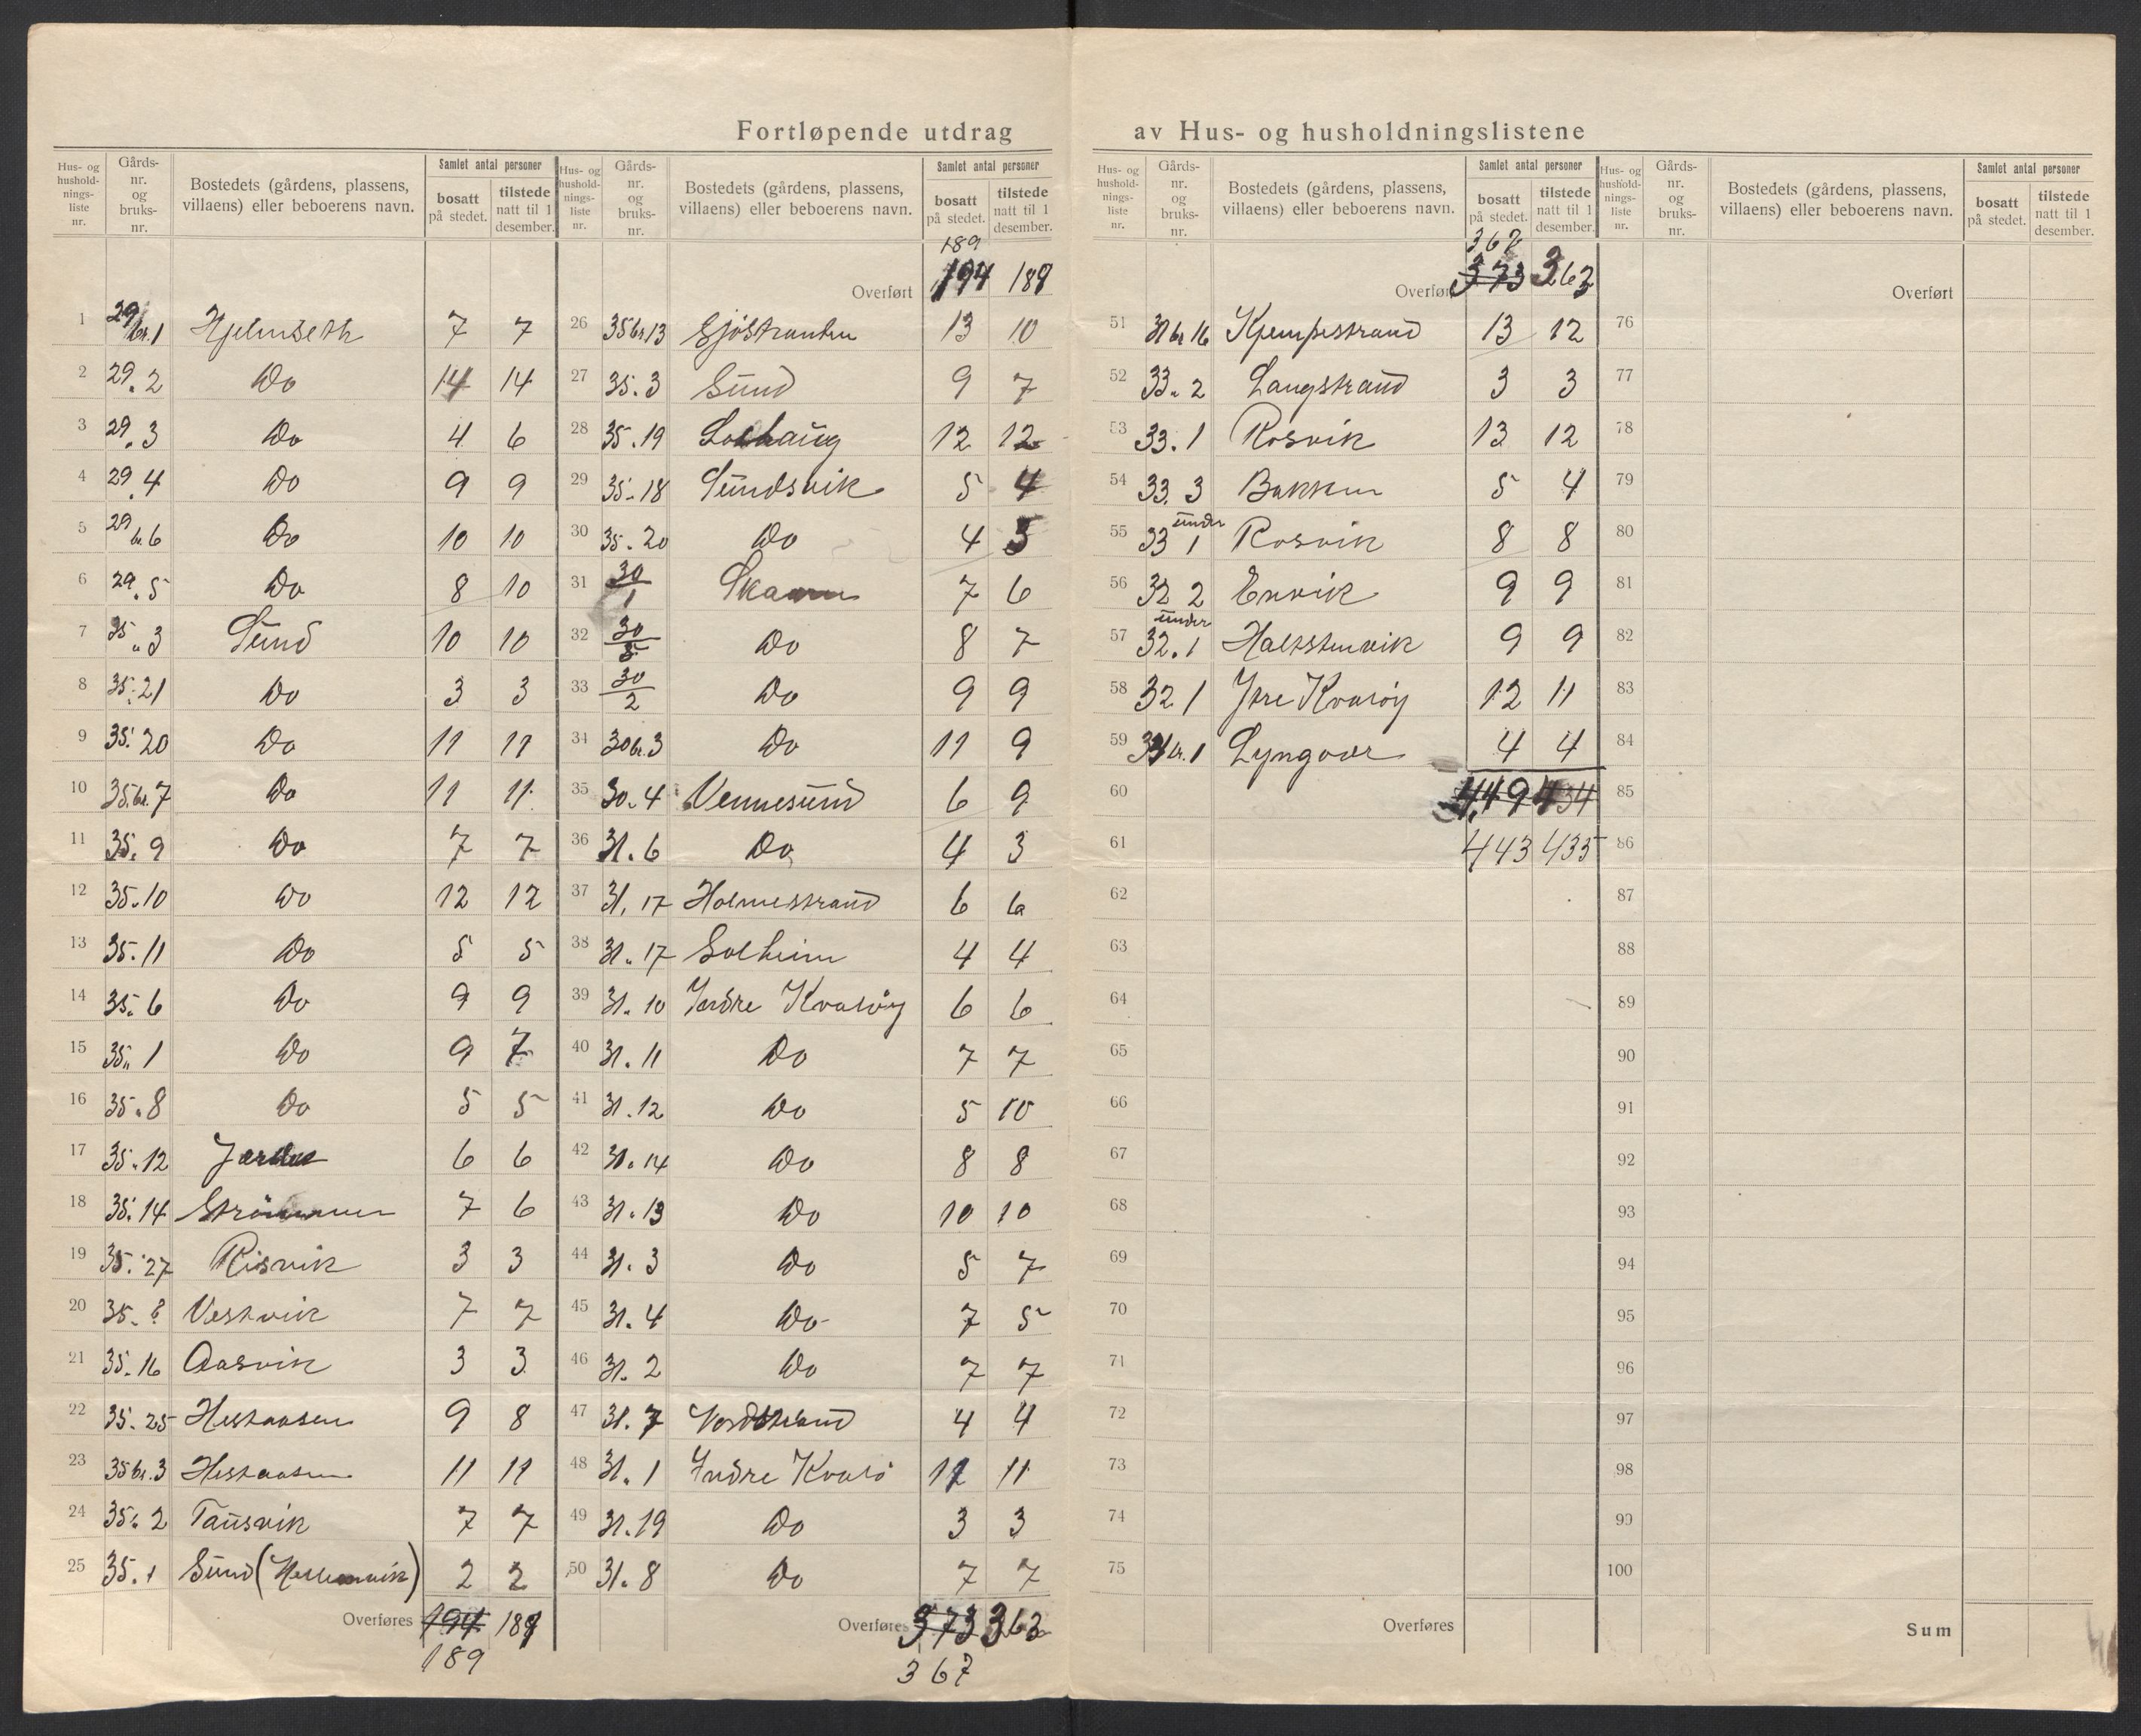 Fortløpende utdrag av Hus- og husholdningslistene
Hus- og hushold- nings- liste nr. Gårds- nr. og bruks- nr. Bostedets (gårdens, plassens, villaens) eller beboerens navn. Samlet antal personer bosatt på stedet. tilstede natt til 1 desember.
1 29 br. 1 Hjelmseth 7 7
2 29. 2 Do 14 14
3 29. 3 Do 4 6
4 29. 4 Do 9 9
5 29 br. 6 Do 10 10
6 29. 5 Do 8 10
7 35 " 3 Sund 10 10
8 35. 21 Do 3 3
9 35. 20 Do 11 11
10 35 br. 7 Do 11 11
11 35. 9 Do 7 7
12 35. 10 Do 12 12
13 35. 11 Do 5 5
14 35. 6 Do 9 9
15 35 " 1 Do 9 7
16 35. 8 Do 5 5
17 35. 12 6 6
18 35. 14 Strömmen 7 6
19 35. 27 Risvik 3 3
20 35. ? Vestvik 7 7
21 35. 16 Aasvik 3 3
22 35. 25 Hestaasen 9 8
23 35 br. 3 Hestaasen 11 11
24 35. 2 Tausvik 7 7
25 35. 1 Sund 2 2
Overføres 194 189
189
Hus- og hushold- nings- liste nr. Gårds- nr. og bruks- nr. Bostedets (gårdens, plassens, villaens) eller beboerens navn. Samlet antal personer bosatt på stedet. tilstede natt til 1 desember.
189
Overført 194 189
26 35 br. 13 Sjöstranden 13 10
27 35. 3 Sund 9 7
28 35. 19 Solhaug 12 12
29 35. 18 Sundsvik 5 4
30 35. 20 Do 4 3
31 30/1 Skaaren 7 6
32 30/5 Do 8 7
33 30/2 Do 9 9
34 30 br. 3 Do 11 9
35 30. 4 Vennesund 6 9
36 31. 6 Do 4 3
37 31. 17 Holmestrand 6 6
38 31. 17 Solheim 4 4
39 31. 10 Indre Kvaröy 6 6
40 31. 11 Do 7 7
41 31. 12 Do 5 10
42 31. 14 Do 8 8
43 31. 13 Do 10 10
44 31. 3 Do 5 7
45 31. 4 Do 7 5
46 31. 2 Do 7 7
47 31. 7 Nordstrand 4 4
48 31. 1 Indre Kvarö 12 11
49 31. 19 Do 3 3
50 31. 8 Do 7 7
Overføres 373 363
367
Hus- og hushold- nings- liste nr. Gårds- nr. og bruks- nr. Bostedets (gårdens, plassens, villaens) eller beboerens navn. Samlet antal personer bosatt på stedet. tilstede natt til 1 desember.
367
Overført 373 363
51 31 br 16 Kjempestrand 13 12
52 33. 2 Langstrand 3 3
53 33. 1 Rosvik 13 12
54 33. 3 Bakken 5 4
55 33 under 1 Rosvik 8 8
56 32 2 Envik 9 9
57 32. under 1 Halstenvik 9 9
58 32 1 Ytre Kvaröy 12 11
59 34 br. 1 Lyngvær 4 4
60 449 434
61 443 435
62
63
64
65
66
67
68
69
70
71
72
73
74
75
Overføres
Hus- og hushold- nings- liste nr. Gårds- nr. og bruks- nr. Bostedets (gårdens, plassens, villaens) eller beboerens navn. Samlet antal personer bosatt på stedet. tilstede natt til 1 desember.
Overført
76
77
78
79
80
81
82
83
84
85
86
87
88
89
90
91
92
93
94
95
96
97
98
99
100
Sum